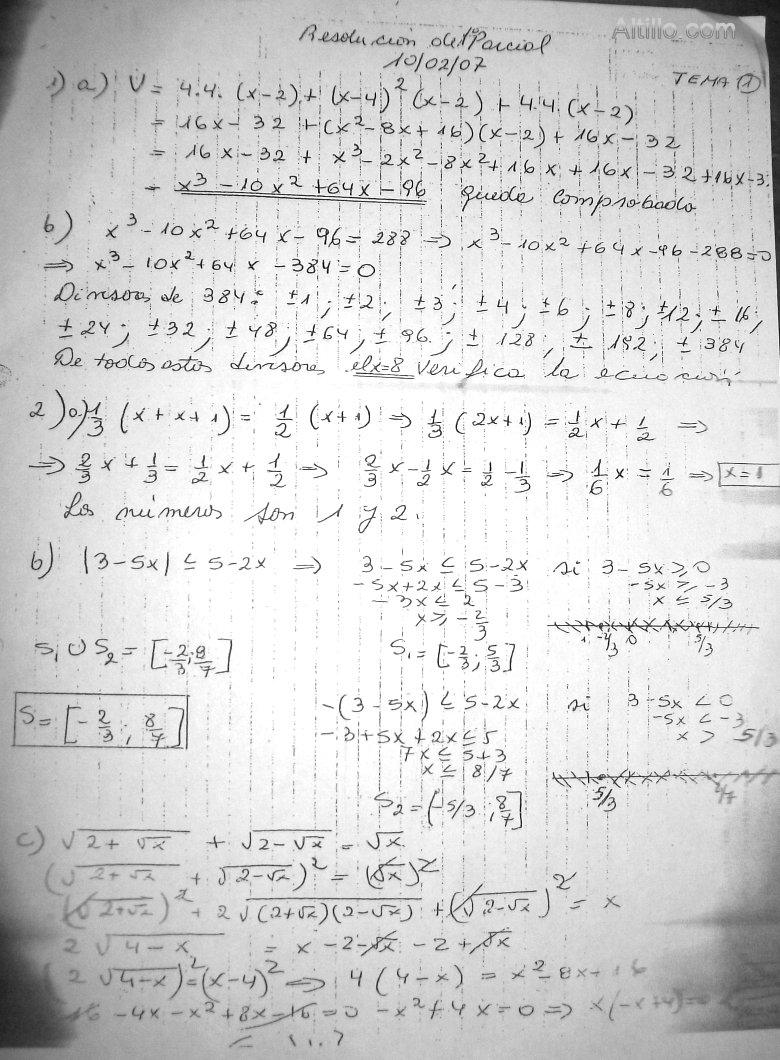 Altillo.com
Resolución del 1º Parcial
10/02/07
TEMA 1
1) a) V = 4.4.(x-2) + (x-4)² (x-2) + 4.4.(x-2)
= 16x - 32 + (x² - 8x + 16)(x-2) + 16x - 32
= 16x - 32 + x³ - 2x² - 8x² + 16x + 16x - 32 + 16x - 3
= x³ - 10x² + 64x - 96 queda comprobado
b) x³ - 10x² + 64x - 96 = 288 ⇒ x³ - 10x² + 64x - 96 - 288 = 0
⇒ x³ - 10x² + 64x - 384 = 0
Divisores de 384: ±1; ±2; ±3; ±4; ±6; ±8; ±12; ±16;
±24; ±32; ±48; ±64; ±96; ±128; ±192; ±384
De todos estos divisores el x=8 verifica la ecuación
2) a) 1/3 (x + x + 1) = 1/2 (x+1) ⇒ 1/3 (2x+1) = 1/2 x + 1/2 ⇒
⇒ 2/3 x + 1/3 = 1/2 x + 1/2 ⇒ 2/3 x - 1/2 x = 1/2 - 1/3 ⇒ 1/6 x = 1/6 ⇒ x = 1
Los números son 1 y 2.
b) |3-5x| ≤ 5-2x ⇒ 3 - 5x ≤ 5 - 2x si 3 - 5x ≥ 0
-5x + 2x ≤ 5 - 3 -5x ≥ -3
-3x ≤ 2 x ≤ 5/3
x ≥ -2/3
-2/3 0 5/3
S₁ ∪ S₂ = [-2/3; 8/7] S₁ = [-2/3; 5/3]
S = [-2/3; 8/7] -(3 - 5x) ≤ 5 - 2x si 3 - 5x < 0
-3 + 5x + 2x ≤ 5 -5x < -3
7x ≤ 5 + 3 x > 5/3
x ≤ 8/7
5/3
S₂ = (-5/3; 8/7]
c) √(2 + √x) + √(2 - √x) = √x
(√(2 + √x) + √(2 - √x))² = (√x)²
(√(2 + √x))² + 2√((2+√x)(2-√x)) + (√(2-√x))² = x
2 √(4 - x) = x - 2 - √x - 2 + √x
(2 √(4-x))² = (x-4)² ⇒ 4(4-x) = x² - 8x + 16
16 - 4x - x² + 8x - 16 = 0 -x² + 4x = 0 ⇒ x(-x+4) = 0